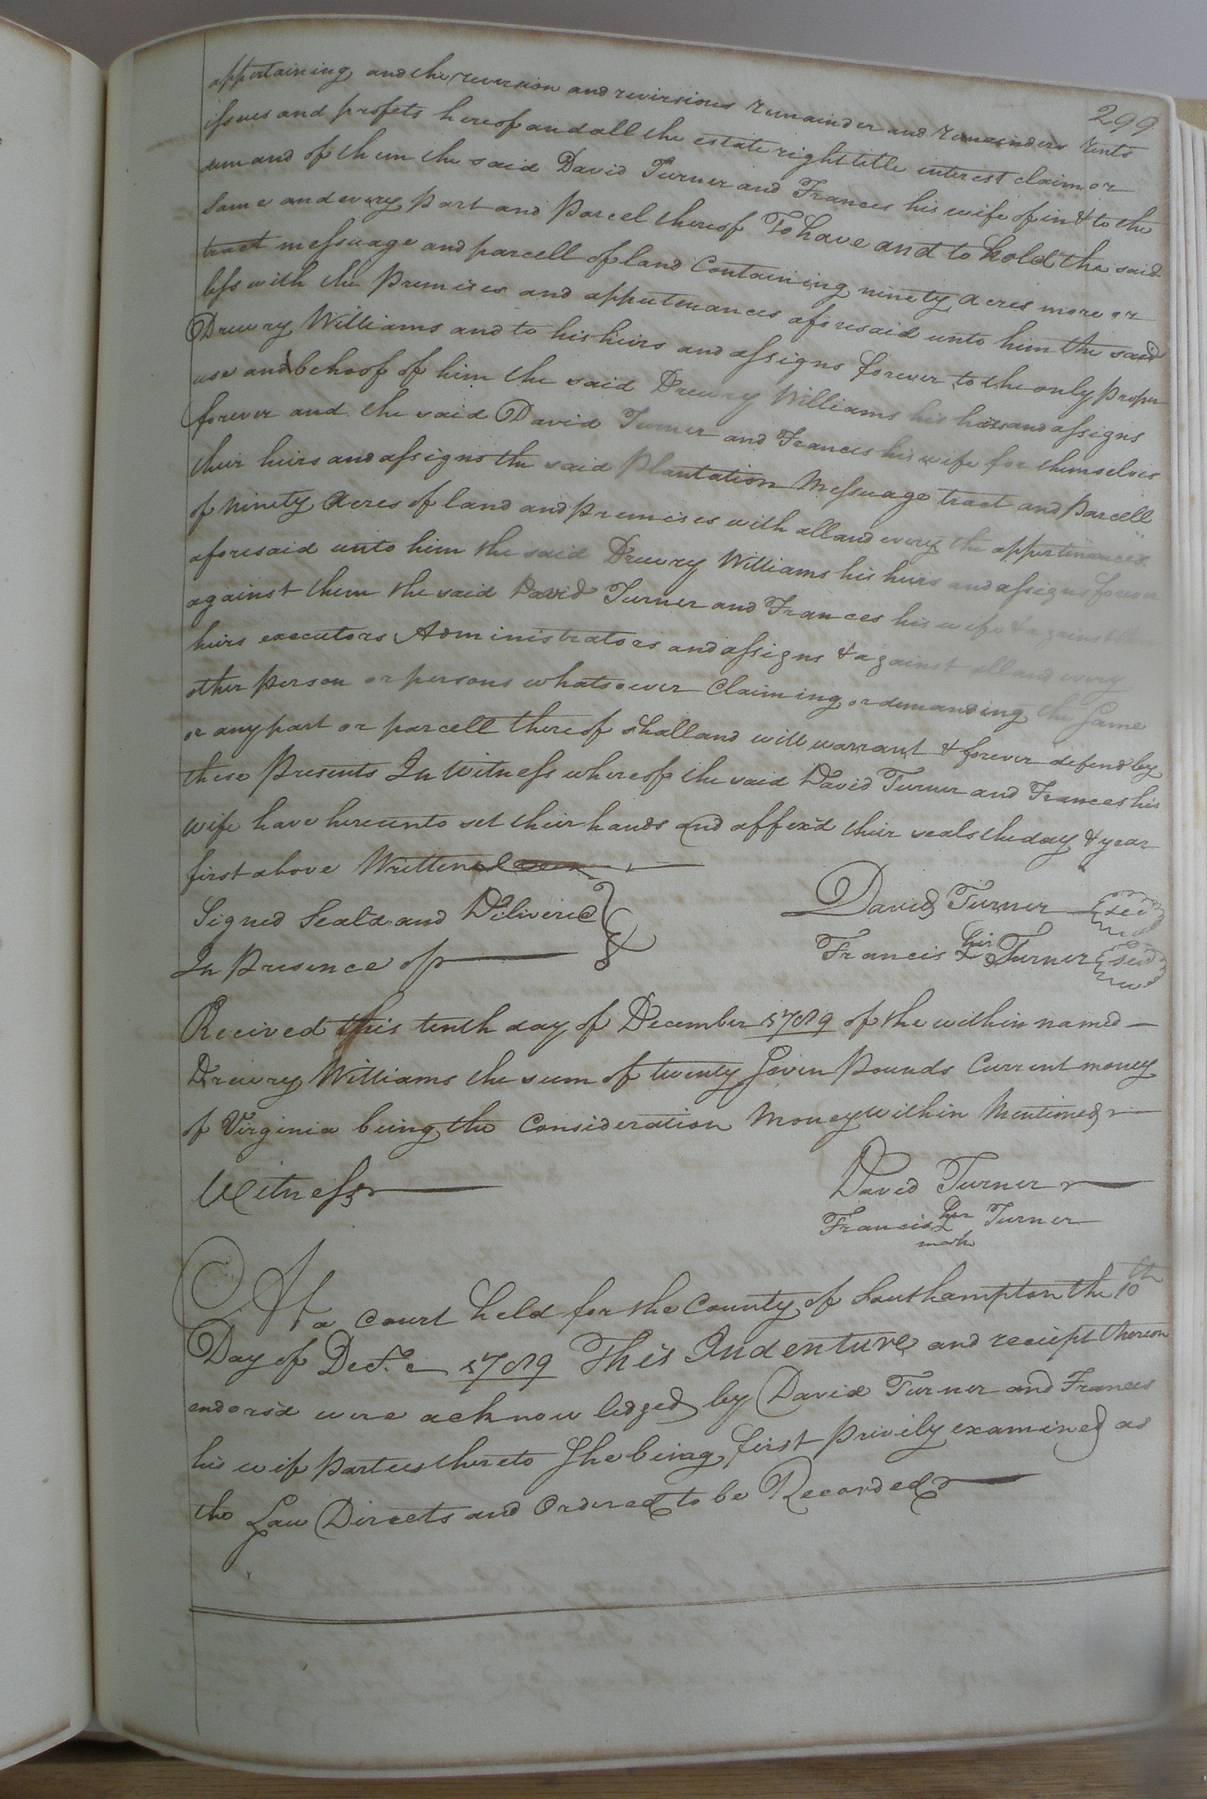 299
appertaining and the reversion and revirsions remainder and remainders rents
issues and profets hereof and all the estate right title interest claim or
demand of them the said David Turner and Frances his wife of in & to the
same and every part and Parcel thereof To have and to hold the said
tract messuage and parcell of land Containing ninety acres more or
less with the Premises and appurtenances aforesaid unto him the said
Drewry Williams and to his heirs and assigns forever to the only proper
use and behoof of him the said Drewry Williams his heirs and assigns
forever and the said David Turner and Frances his wife for themselves
their heirs and assigns the said Plantation Messuage tract and Parcell
of ninety Acres of land and Premises with all and every the appertinances
aforesaid unto him the said Drewry Williams his heirs and assigns forever
against them the said David Turner and Frances his wife & against the
heirs executors Administrators and assigns & against all and every
other Person or persons whatsoever Claiming or demanding the same
or any part or parcell thereof shall and will warrant & forever defend by
these Presents In Witness whereof the said David Turner and Frances his
wife have hereunto set their hands and affex'd their seals the day & year
first above Written
Signed Seal'd and Deliverd
In Presence of
David Turner seal
Francis her x Turner seal
Recived this tenth day of December 1789 of the within named
Drewry Williams the sum of twenty Seven Pounds Current money
of Virginia being the Consideration Money within Mentioned
Witness
David Turner
Francis her Turner
mark
At a Court held for the County of Southampton the 10th
Day of Decr. 1789 This Indenture and reciept thereon
endors'd were acknowledged by David Turner and Frances
his wife Parties thereto She being first privily examined as
the Law Directs and Ordered to be Recorded